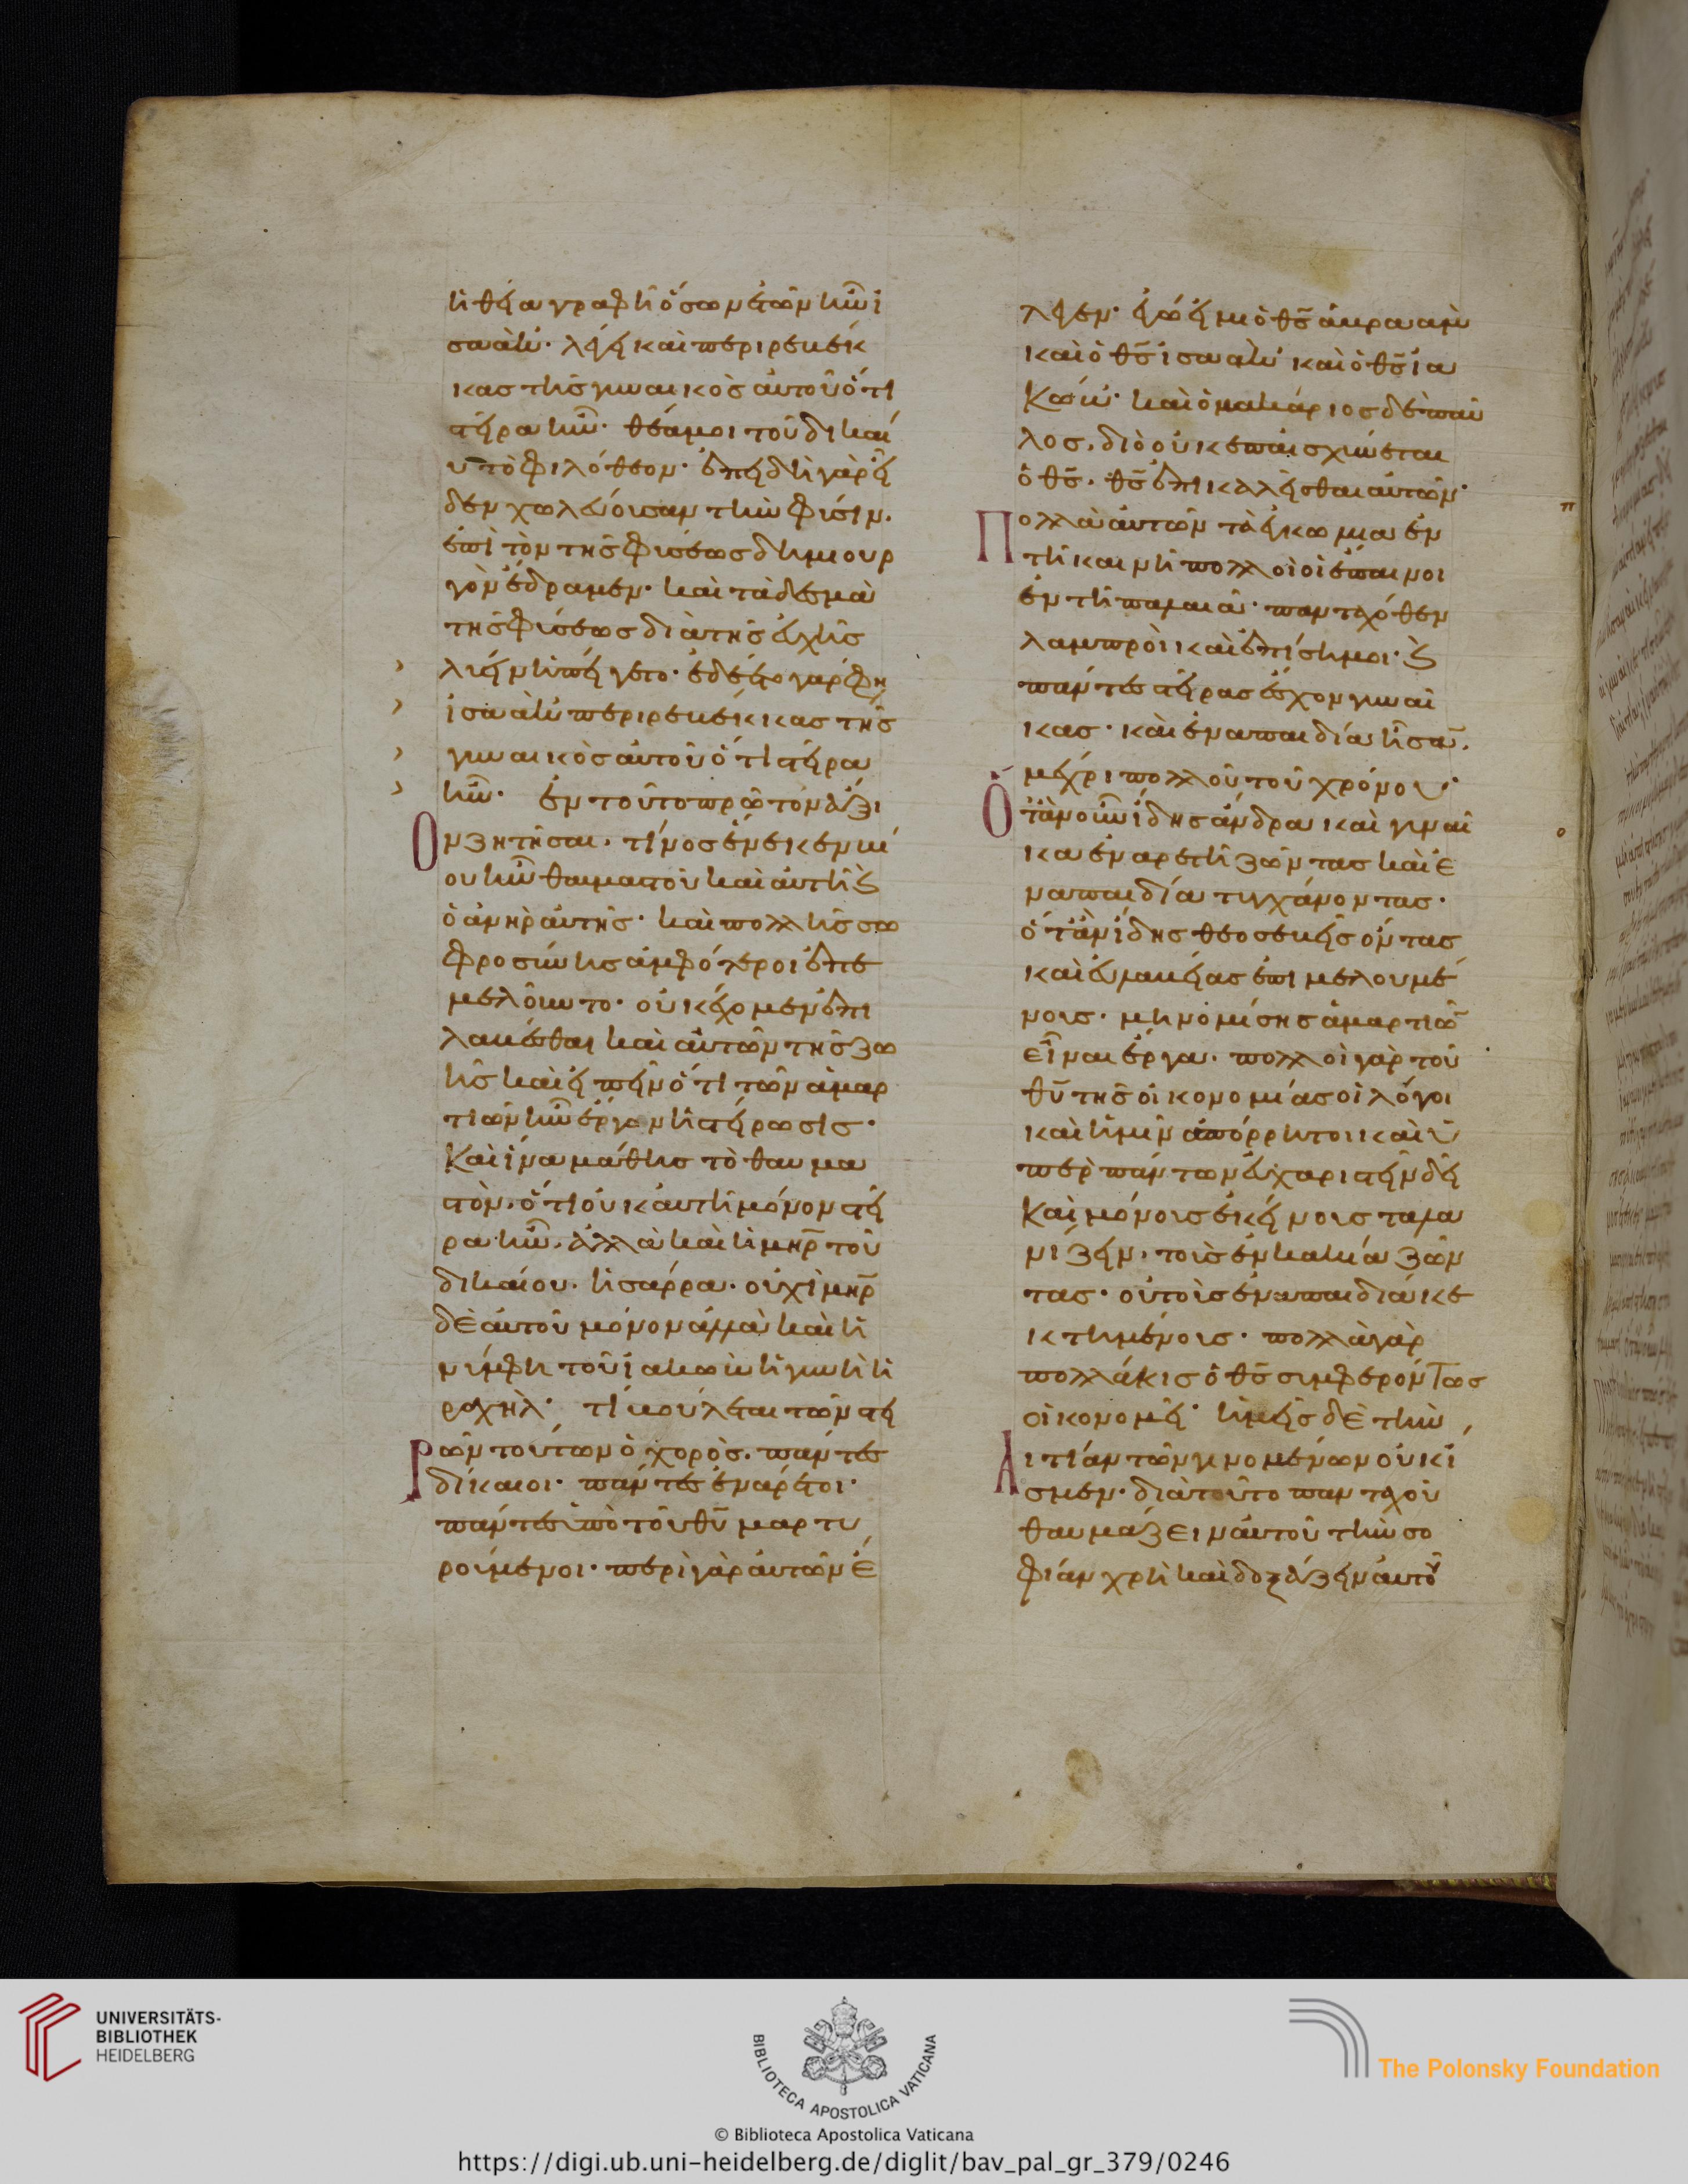 ἡ θεία γραφὴ ὅσων ἐτῶν ἦν ἱ
σαάκ· λέγει καὶ περὶ ρεβέκ
κας τῆς γυναικὸς αὐτοῦ ὅτι
στείρα ἦν· θέα μοι τοῦ δικαί
υ τὸ φιλόθεον· ἐπειδὴ γὰρ εἶ
δεν χωλεύουσαν τὴν φύσιν.
ἐπὶ τὸν τῆς φύσεως δημιουρ
γὸν ἔδραμεν· καὶ τὰ δεσμὰ
τῆς φύσεως διὰ τῆς εὐχῆς
λύειν ἠπείγετο· ἐδεῖτο γάρ φη
ἰσαὰκ περὶ ρεβέκκας τῆς
γυναικὸς αὐτοῦ ὅτι στείρα
ἦν· ἐν τοῦτο πρῶτον ἄξι
Ον ζητῆσαι. τίνος ἕνεκεν βί
ου ἦν θαυμαστοῦ καὶ αὐτὴ ϗ
ὁ ἀνὴρ αὐτῆς· καὶ πολλῆς σω
φροσύνης ἀμφότεροι ἐπε
μελοῦντο· οὐκ ἔχομεν ἐπι
λαβέσθαι καὶ αὐτῶν τῆς ζω
ῆς καὶ εἰπεῖν ὅτι τῶν ἁμαρ
τιῶν ἦν ἔργον ἡ στείρωσις·
Καὶ ἵνα μάθης τὸ θαυμα
στὸν. ὅτι οὐκ αὐτὴ μόνον στεί
ρα ἦν. ἀλλὰ καὶ ἡ μη̅ρ̅ τοῦ
δικαίου. ἡ σάρρα. οὐχὶ μη̅ρ̅
δὲ αὐτοῦ μόνον ἀλλὰ καὶ ἡ
νύμφη τοῦ ἰακὼβ ἡ γυνὴ ἡ
ραχήλ· τί βούλεται τῶν στει
Ρῶν τούτων ὁ χορός. πάντες
δίκαιοι· πάντες ἐνάρετοι·
πάντες ὑπὸ τοῦ θ̅υ̅ μαρτυ
ρούμενοι· περὶ γὰρ αὐτῶν ἔ
λεγεν· ἐγώ εἰμι ὁ θ̅ς̅ ἀβραὰμ
καὶ ὁ θ̅ς̅ ἰσαὰκ καὶ ὁ θ̅ς̅ ἰα
κώβ· καὶ ὁ μακάριος δὲ παῦ
λος. διὸ οὐκ ἐπαισχύνεται
ὁ θ̅ς̅. θ̅ς̅ ἐπικαλεῖσθαι αὐτῶν·
Πολλὰ αὐτῶν τὰ ἐγκώμια ἐν
τῆ καινῆ πολλοὶ οἱ ἔπαινοι
ἐν τῆ παλαιᾶ· πανταχόθεν
λαμπροὶ καὶ ἐπίσημοι· ϗ
πάντες στείρας ἔσχον γυναῖ
κας· καὶ ἐν ἀπαιδία ἦσαν.
μέχρι πολλοῦ τοῦ χρόνου·
Ὅταν οὖν ἴδης ἄνδρα καὶ γυναῖ
κα ἐν ἀρετῆ ζῶντας καὶ ἐ
ν ἀπαιδία τυγχάνοντας·
ὅταν ἴδης θεοσεβεῖς ὄντας
καὶ εὐλαβείας ἐπιμελουμέ
νους. μὴ νομίσης ἁμαρτιῶν
εἶναι ἔργα. πολλοὶ γὰρ τοῦ
θ̅υ̅ τῆς οἰκονομίας οἱ λόγοι
καὶ ἡμῖν ἀπόρρητοι καὶ ὑ
πὲρ πάντων εὐχαριστεῖν δεῖ
Καὶ μόνους ἐκείνους ταλα
νίζειν. τοὺς ἐν κακία ζῶν
τας· οὐ τοὺς ἐν ἀπαιδία κε
κτημένους· πολλὰ γὰρ
πολλάκις ὁ θ̅ς̅ συμφερόντως
οἰκονομεῖ· ἡμεῖς δὲ τὴν
Αἰτίαν τῶν γινομένων οὐκ ἴ
σμεν· διὰ τοῦτο πανταχοῦ
θαυμάζειν αὐτοῦ τὴν σο
φίαν χρὴ καὶ δοξάζειν αὐτοῦ
UNIVERSITÄTS-
BIBLIOTHEK
HEIDELBERG
BIBLIOTECA APOSTOLICA VATICANA
The Polonsky Foundation
© Biblioteca Apostolica Vaticana
https://digi.ub.uni-heidelberg.de/diglit/bav_pal_gr_379/0246